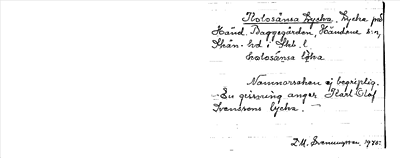 Holosånsa Lycka. Lycka på
Händ. Baggegården, Händene s:n,
Skån. hd i Skb. l.
holosånsa lỳka
Namnorsaken ej begriplig.
En gissning anger Karl Olof
Svenssons lycka.
D.M. Svenungsson. 1930.